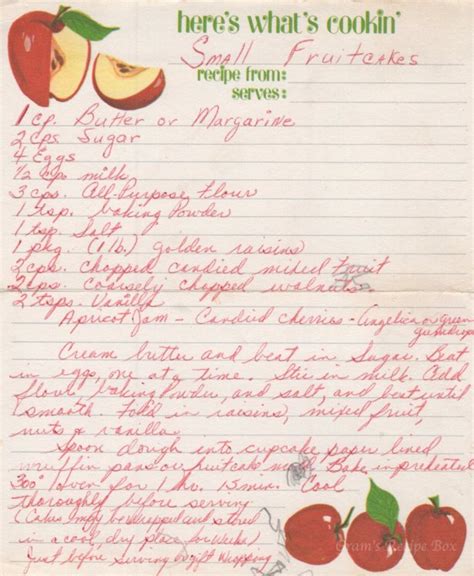 here's what's cookin'
Small Fruitcakes
recipe from:
serves:
1 cp. Butter or Margarine
2 cps Sugar
4 Eggs
1/2 cp. milk
3 cps. All-Purpose Flour
1 tsp. baking Powder
1 tsp. Salt
1 pkg. (1 lb.) golden raisins
2 cps. chopped candied mixed fruit
2 cps. coarsely chopped walnuts
2 tsps. Vanilla
Apricot Jam - Candied cherries - Angelica or Green
gumdrops
Cream butter and beat in Sugar. Beat
in eggs, one at a time. Stir in milk. Add
flour, baking Powder, and salt, and beat until
smooth. Fold in raisins, mixed fruit,
nuts & vanilla.
Spoon dough into cupcake paper lined
muffin pans or fruitcake Bake in preheated
300° oven for 1 hr. 15 min. Cool
thoroughly before serving
(Cakes may be wrapped and stored
in a cool dry place for weeks)
Just before serving or gift wrapping
Gram's Recipe Box